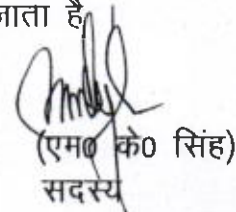 जाता है
(एम0 के0 सिंह)
सदस्य